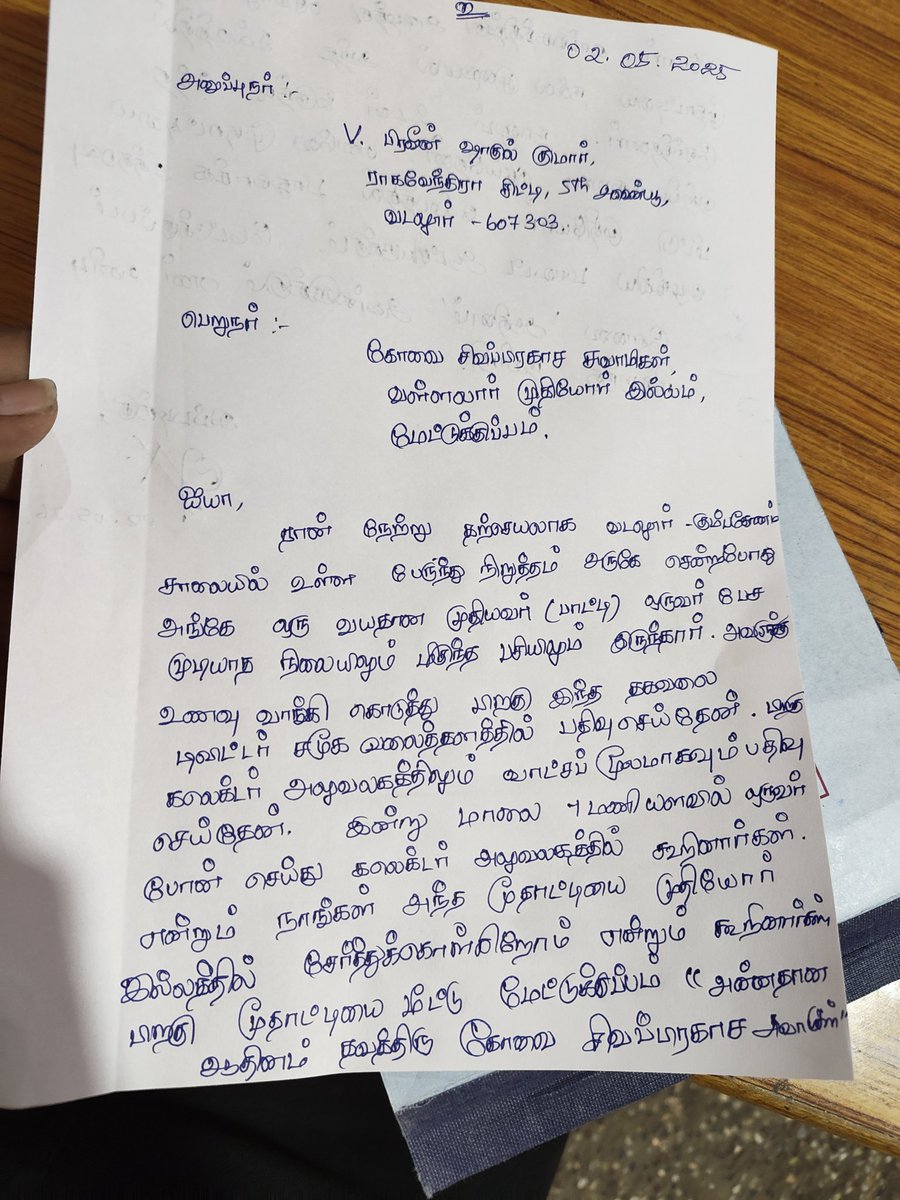 உ
02.05.2025
அனுப்புநர் :-
V. பிரவீன் ஷாகுல் குமார்,
ராகவேந்திரா சிட்டி, 5th அவென்யூ,
வடலூர் - 607303.
பெறுநர் :-
கோவை சிவப்பிரகாச சுவாமிகள்,
வள்ளலார் முதியோர் இல்லம்,
மேட்டுக்குப்பம்.
ஐயா,
நான் நேற்று தற்செயலாக வடலூர் - கும்பகோணம்
சாலையில் உள்ள பேருந்து நிறுத்தம் அருகே சென்றபோது
அங்கே ஒரு வயதான முதியவர் (பாட்டி) ஒருவர் பேச
முடியாத நிலையிலும் மிகுந்த பசியிலும் இருந்தார். அவருக்கு
உணவு வாங்கி கொடுத்து பிறகு இந்த தகவலை
டிவிட்டர் சமூக வலைத்தளத்தில் பதிவு செய்தேன். பிறகு
கலெக்டர் அலுவலகத்திலும் வாட்சப் மூலமாகவும் பதிவு
செய்தேன். இன்று மாலை 7 மணியளவில் ஒருவர்
போன் செய்து கலெக்டர் அலுவலகத்தில் கூறினார்கள்.
என்றும் நாங்கள் அந்த மூதாட்டியை முதியோர்
இல்லத்தில் சேர்த்துக்கொள்கிறோம் என்றும் கூறினார்கள்
பிறகு மூதாட்டியை மீட்டு மேட்டுக்குப்பம் "அன்னதான
ஆதினம் தவத்திரு கோவை சிவப்பிரகாச சுவாமிகள்"